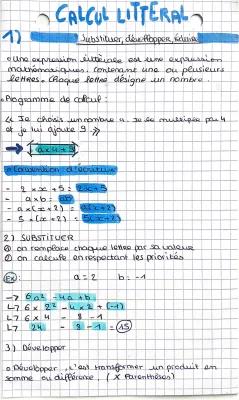 CALCUL LITTÉRAL
1) Substituer, développer, réduire
• une expression littérale est une expression
mathématiques, contenant une ou plusieurs
lettres. Chaque lettre désigne un nombre.
• Programme de calcul :
« Je choisis un nombre a. Je le multiplie par 4
et je lui ajoute 9 »
→ a×4+9
• Convention d'écriture
- 2 × x + 5 = 2x+5
- a×b = ab
- a×(x+2) = a(x+2)
- 5×(x+2) = 5(x+2)
2) SUBSTITUER
① on remplace chaque lettre par sa valeur
② on calcule en respectant les priorités
Ex: a = 2 b = -1
→ 6a² - 4a + b
6 × 2² - 4 × 2 + (-1)
6 × 4 - 8 - 1
24 - 8 - 1 = 15
3) Développer
• Développer, c'est transformer un produit en
somme ou différence. (× Parenthèses)